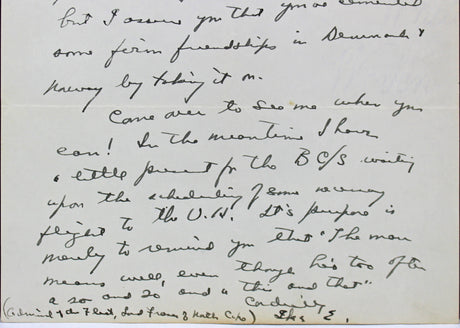 but I assure you that you've cemented
some firm friendships in Denmark &
Norway by taking it on.
Come over to see me when you
can! In the meantime I have
a little present for the B C/S waiting
upon the scheduling of some
flight to the U.K. It's purpose is
merely to remind you that "The man
means well, even though he's too often
a so and so and a "this and that"
Cordially
Ike E.
(Admiral of the Fleet, Lord Fraser of North Cape)